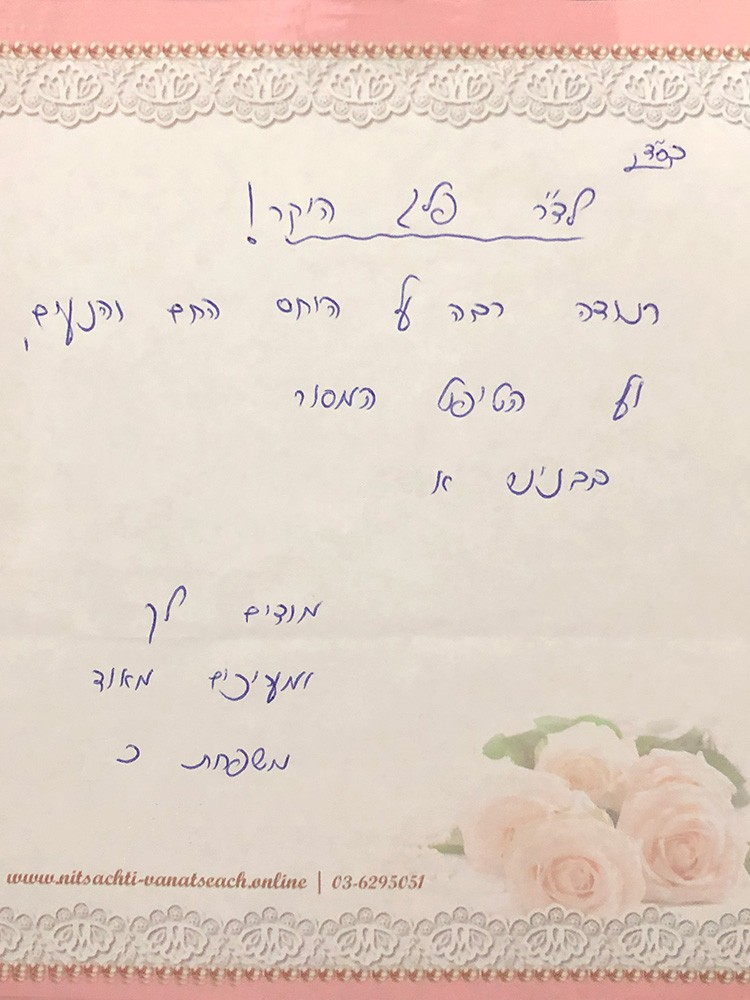 בס"ד
לד"ר פלג היקר!
תודה רבה על היחס החם והנעים,
ועל הטיפול המסור
בבניש א
מודים לך
ומעריכים מאוד
משפחת כ
www.nitsachti-vanatseach.online | 03-6295051